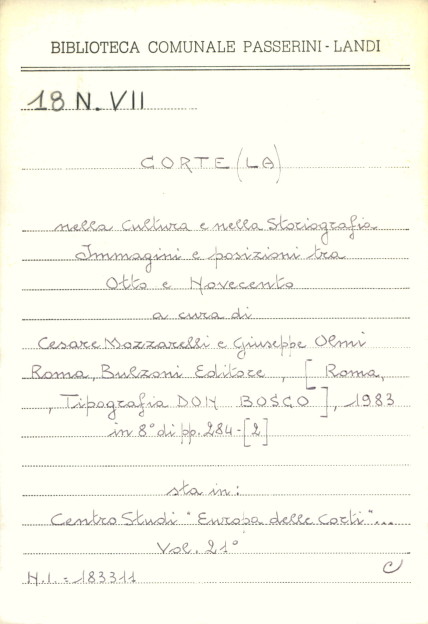 BIBLIOTECA COMUNALE PASSERINI-LANDI
18 N. VII
CORTE (LA)
nella Cultura e nella Storiografia
Immagini e posizioni tra
Otto e Novecento
a cura di
Cesare Mozzarelli e Giuseppe Olmi
Roma, Bulzoni Editore, [Roma,
, Tipografia DON BOSCO], 1983
in 8° di pp. 284-[2]
sta in:
Centro Studi "Europa delle Corti"...
Vol. 21°
N.I. = 183311